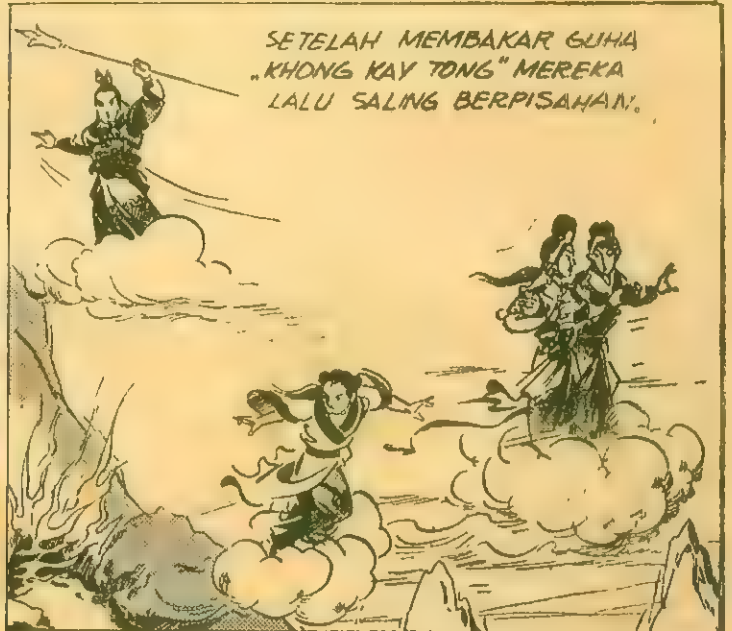 SETELAH MEMBAKAR GUHA
„KHONG KAY TONG" MEREKA
LALU SALING BERPISAHAN.